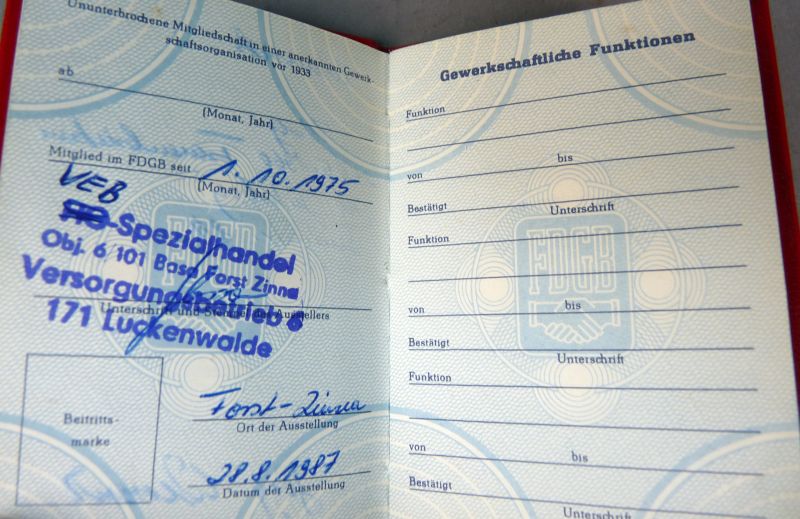 Ununterbrochene Mitgliedschaft in einer anerkannten Gewerk-
schaftsorganisation vor 1933
ab
(Monat, Jahr)
Mitglied im FDGB seit 1. 10. 1975
(Monat, Jahr)
VEB
HO-Spezialhandel
Obj. 6/101 Basa Forst Zinna
Versorgungsbetrieb 6
Unterschrift und Stempel des Ausstellers
171 Luckenwalde
Beitritts-
marke
Forst-Zinna
Ort der Ausstellung
28.8.1987
Datum der Ausstellung
Gewerkschaftliche Funktionen
Funktion
von bis
Bestätigt
Unterschrift
Funktion
FDGB
von bis
Bestätigt
Unterschrift
Funktion
von bis
Bestätigt
Unterschrift